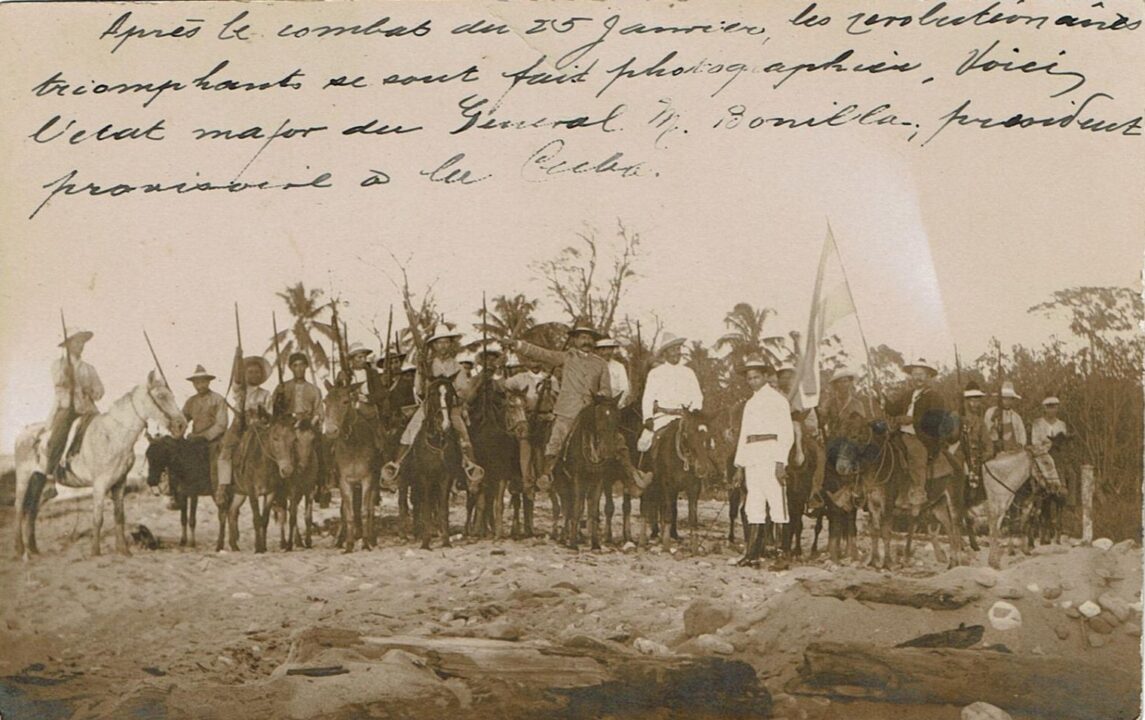 Après le combat du 25 Janvier, les revolutionaires
triomphants se sont fait photographier. Voici,
l'etat major du General M. Bonilla, president
provisoire à la Ceiba.